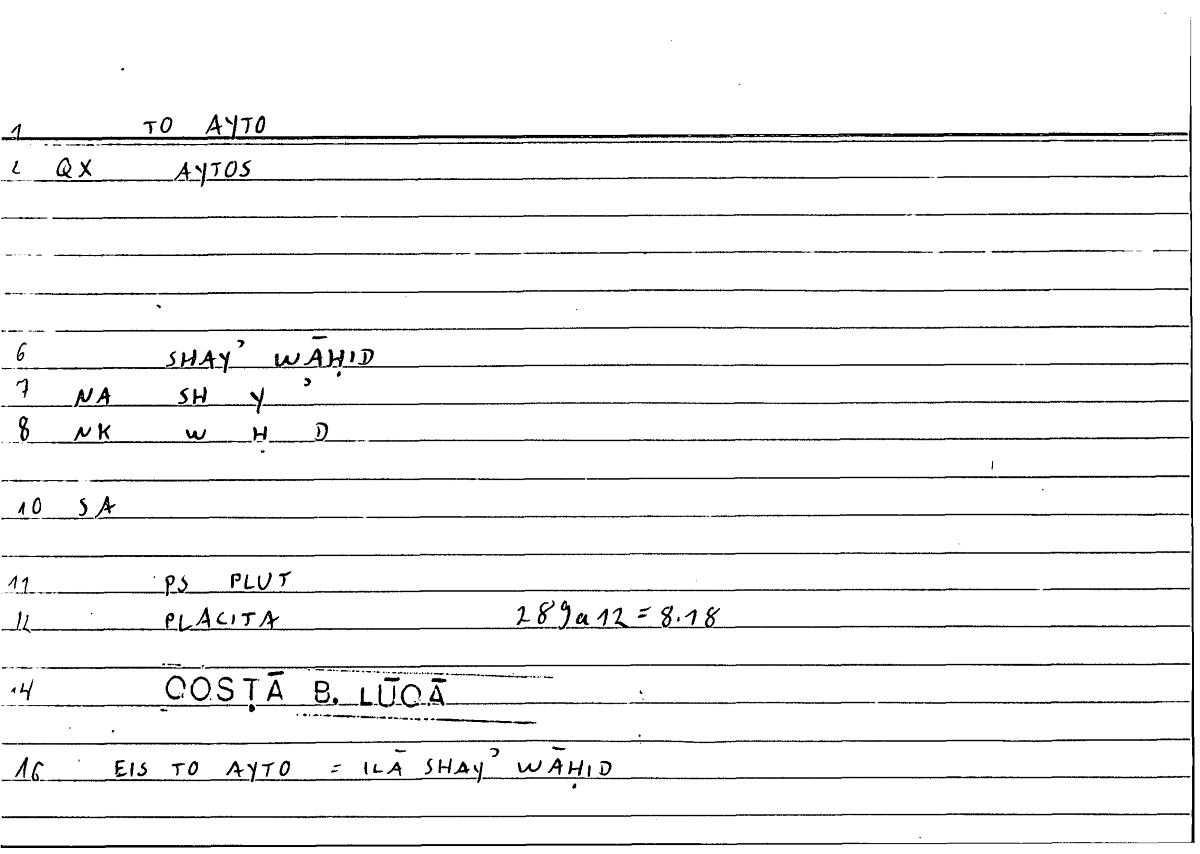 1 TO AYTO
2 QX AYTOS
6 SHAYʾ WĀḤID
7 NA SH Y ʾ
8 NK W Ḥ D
10 SA
11 PS PLUT
12 PLACITA 289a12 = 8.18
14 QOSṬĀ B. LŪQĀ
16 EIS TO AYTO = ILĀ SHAYʾ WĀḤID